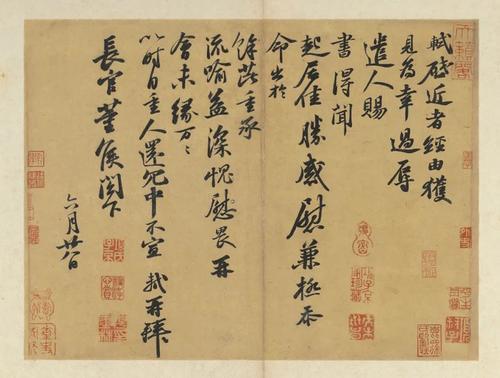 軾啓近者經由獲
見為幸過辱
遣人賜
書得聞
起居佳勝感慰兼極忝
命出於
餘芘重承
流喻益深愧慰畏再
會未緣万々
以時自重人還冗中不宣 軾再拜
長官董侯閤下
六月廿八日